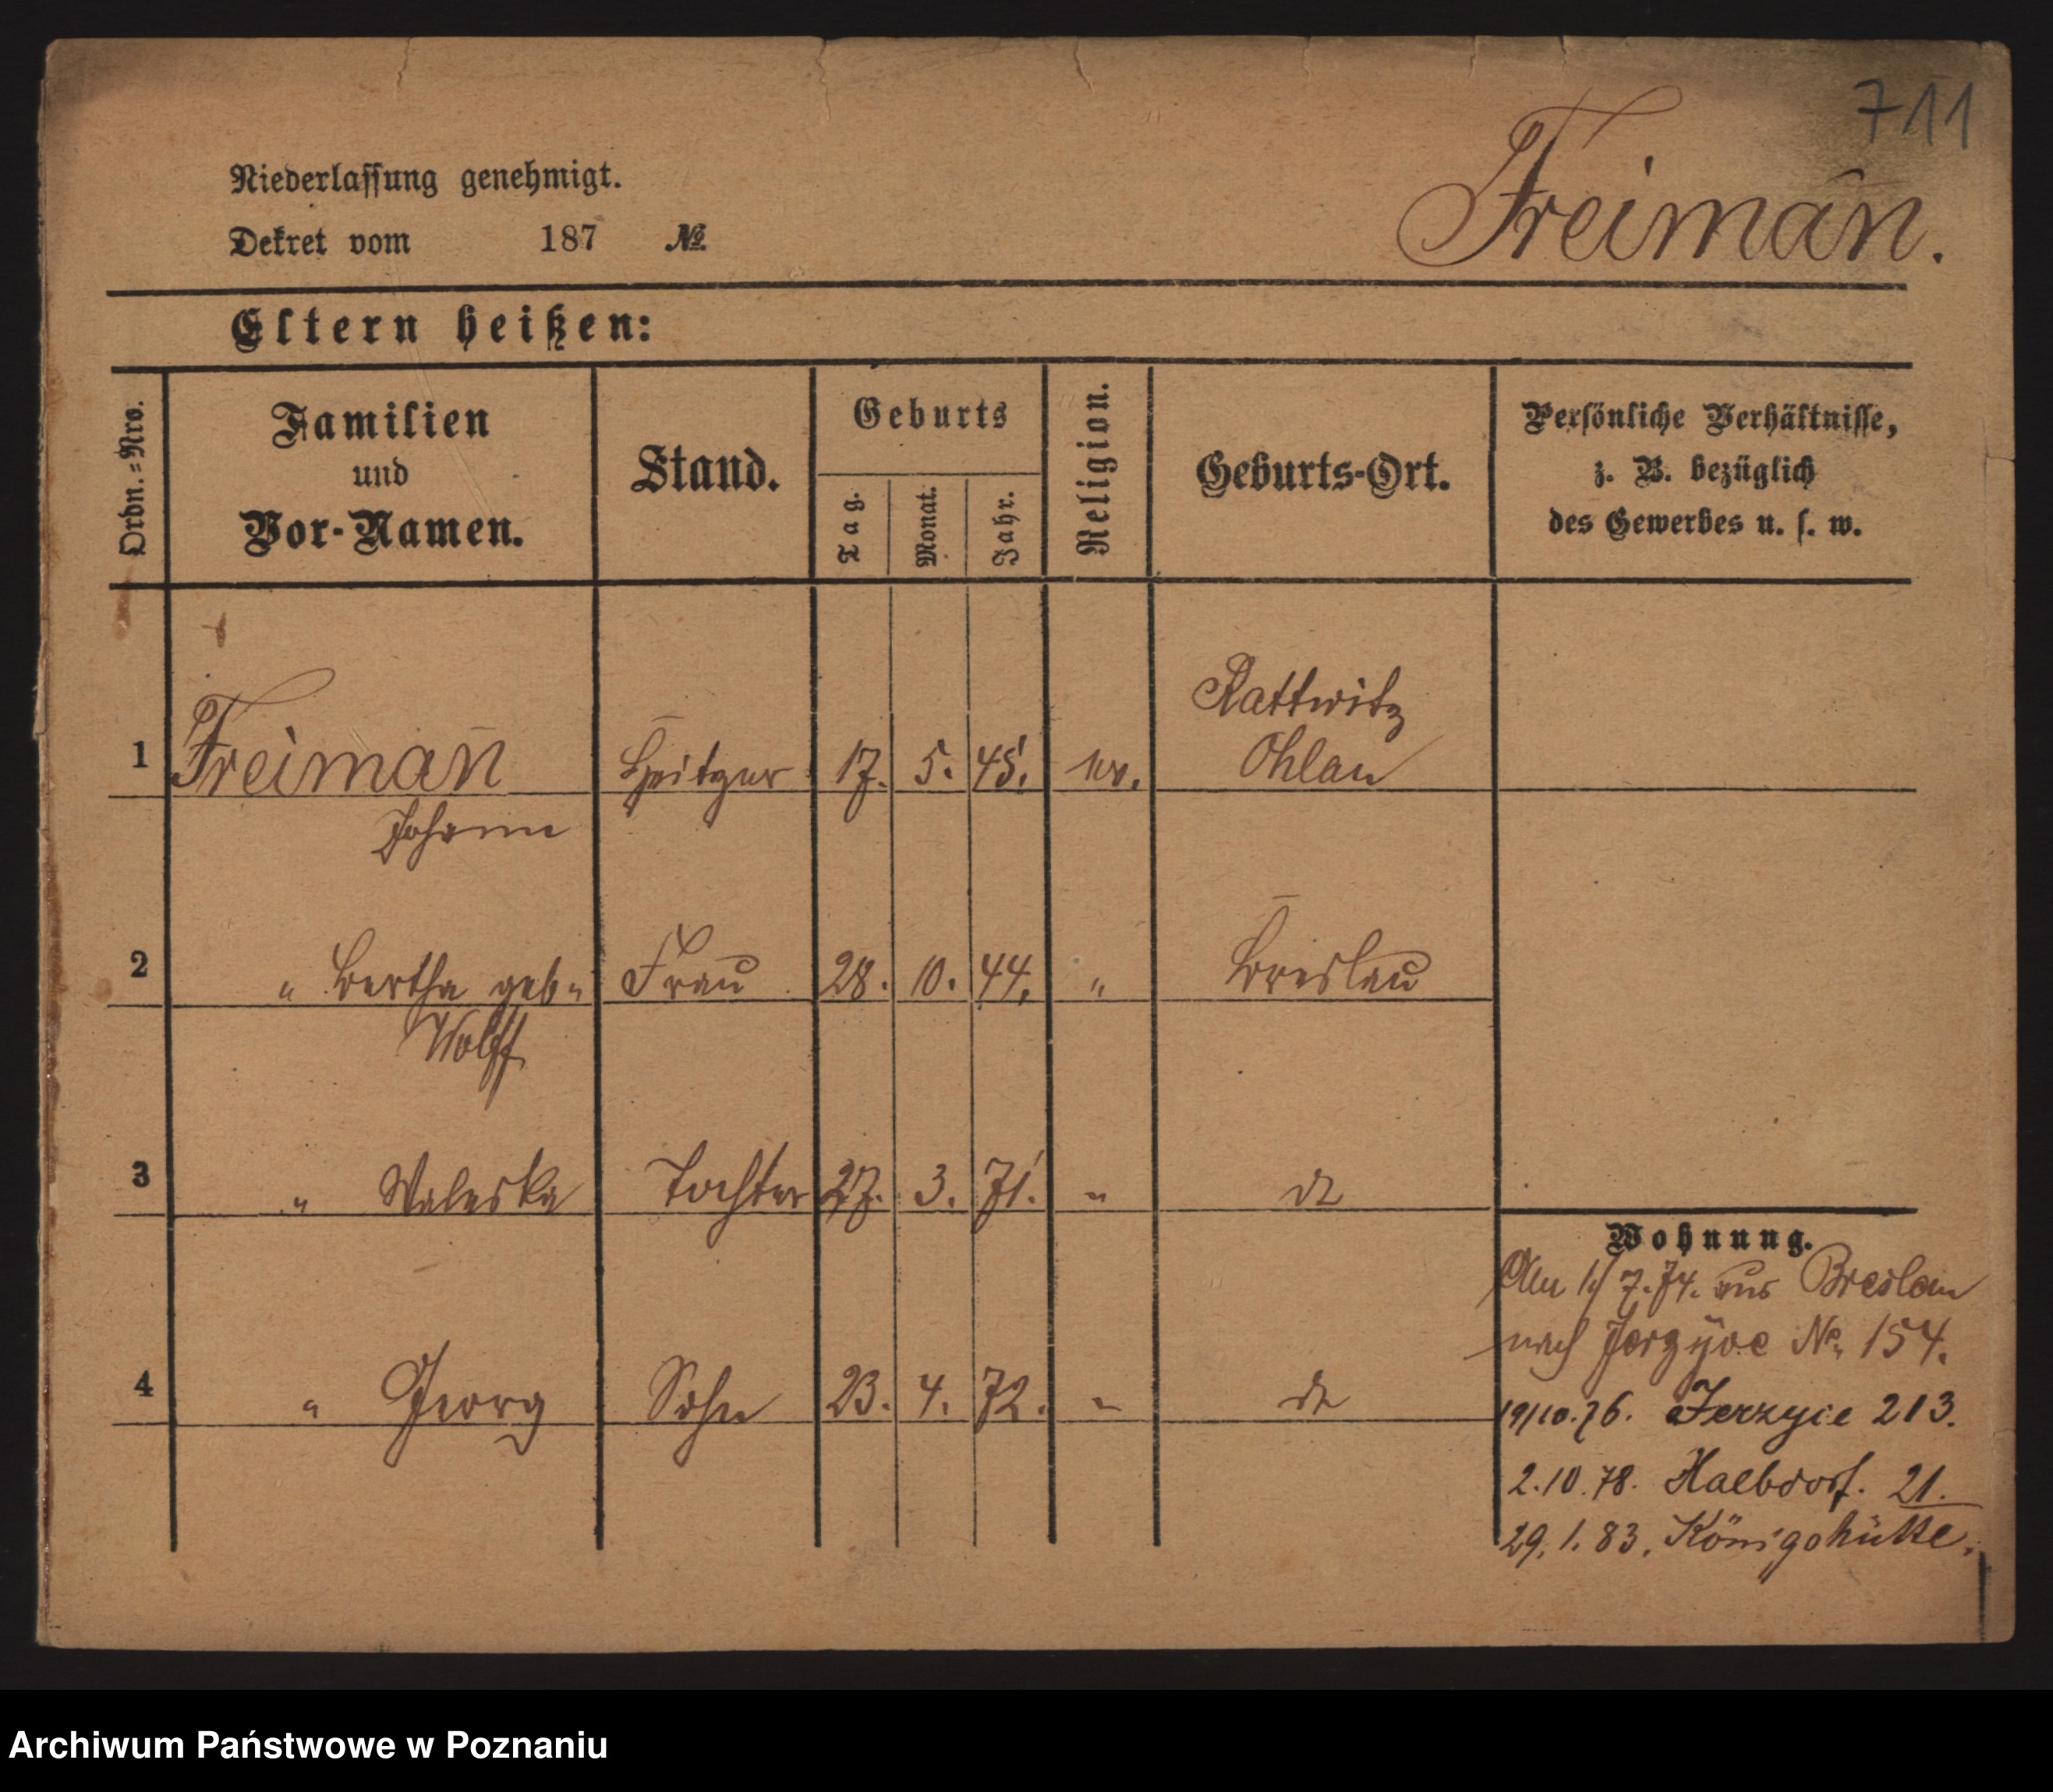 711
Niederlassung genehmigt.
Freimañ.
Dekret vom 187 №
Eltern heißen:
Ordn.=Nro.
Familien
und
Vor-Namen.
Stand.
Geburts
Tag.
Monat.
Jahr.
Religion.
Geburts-Ort.
Persönliche Verhältnisse,
z. B. bezüglich
des Gewerbes u. s. w.
Rattwitz
1 Freimañ Heitzer 17. 5. 45. ev. Ohlau
Johann
2 " Bertha geb. Frau 28. 10. 44. " Breslau
Wolff
3 " Waleska Tochter 27. 3. 71. " do
Wohnung.
Am 1/7.74. aus Breslau
nach Jerzyce No 154.
4 " Georg Sohn 23. 4. 72. " do
19/10.76. Jerzyce 213.
2.10.78. Halbdorf. 21.
29.1.83. Königshütte.
Archiwum Państwowe w Poznaniu